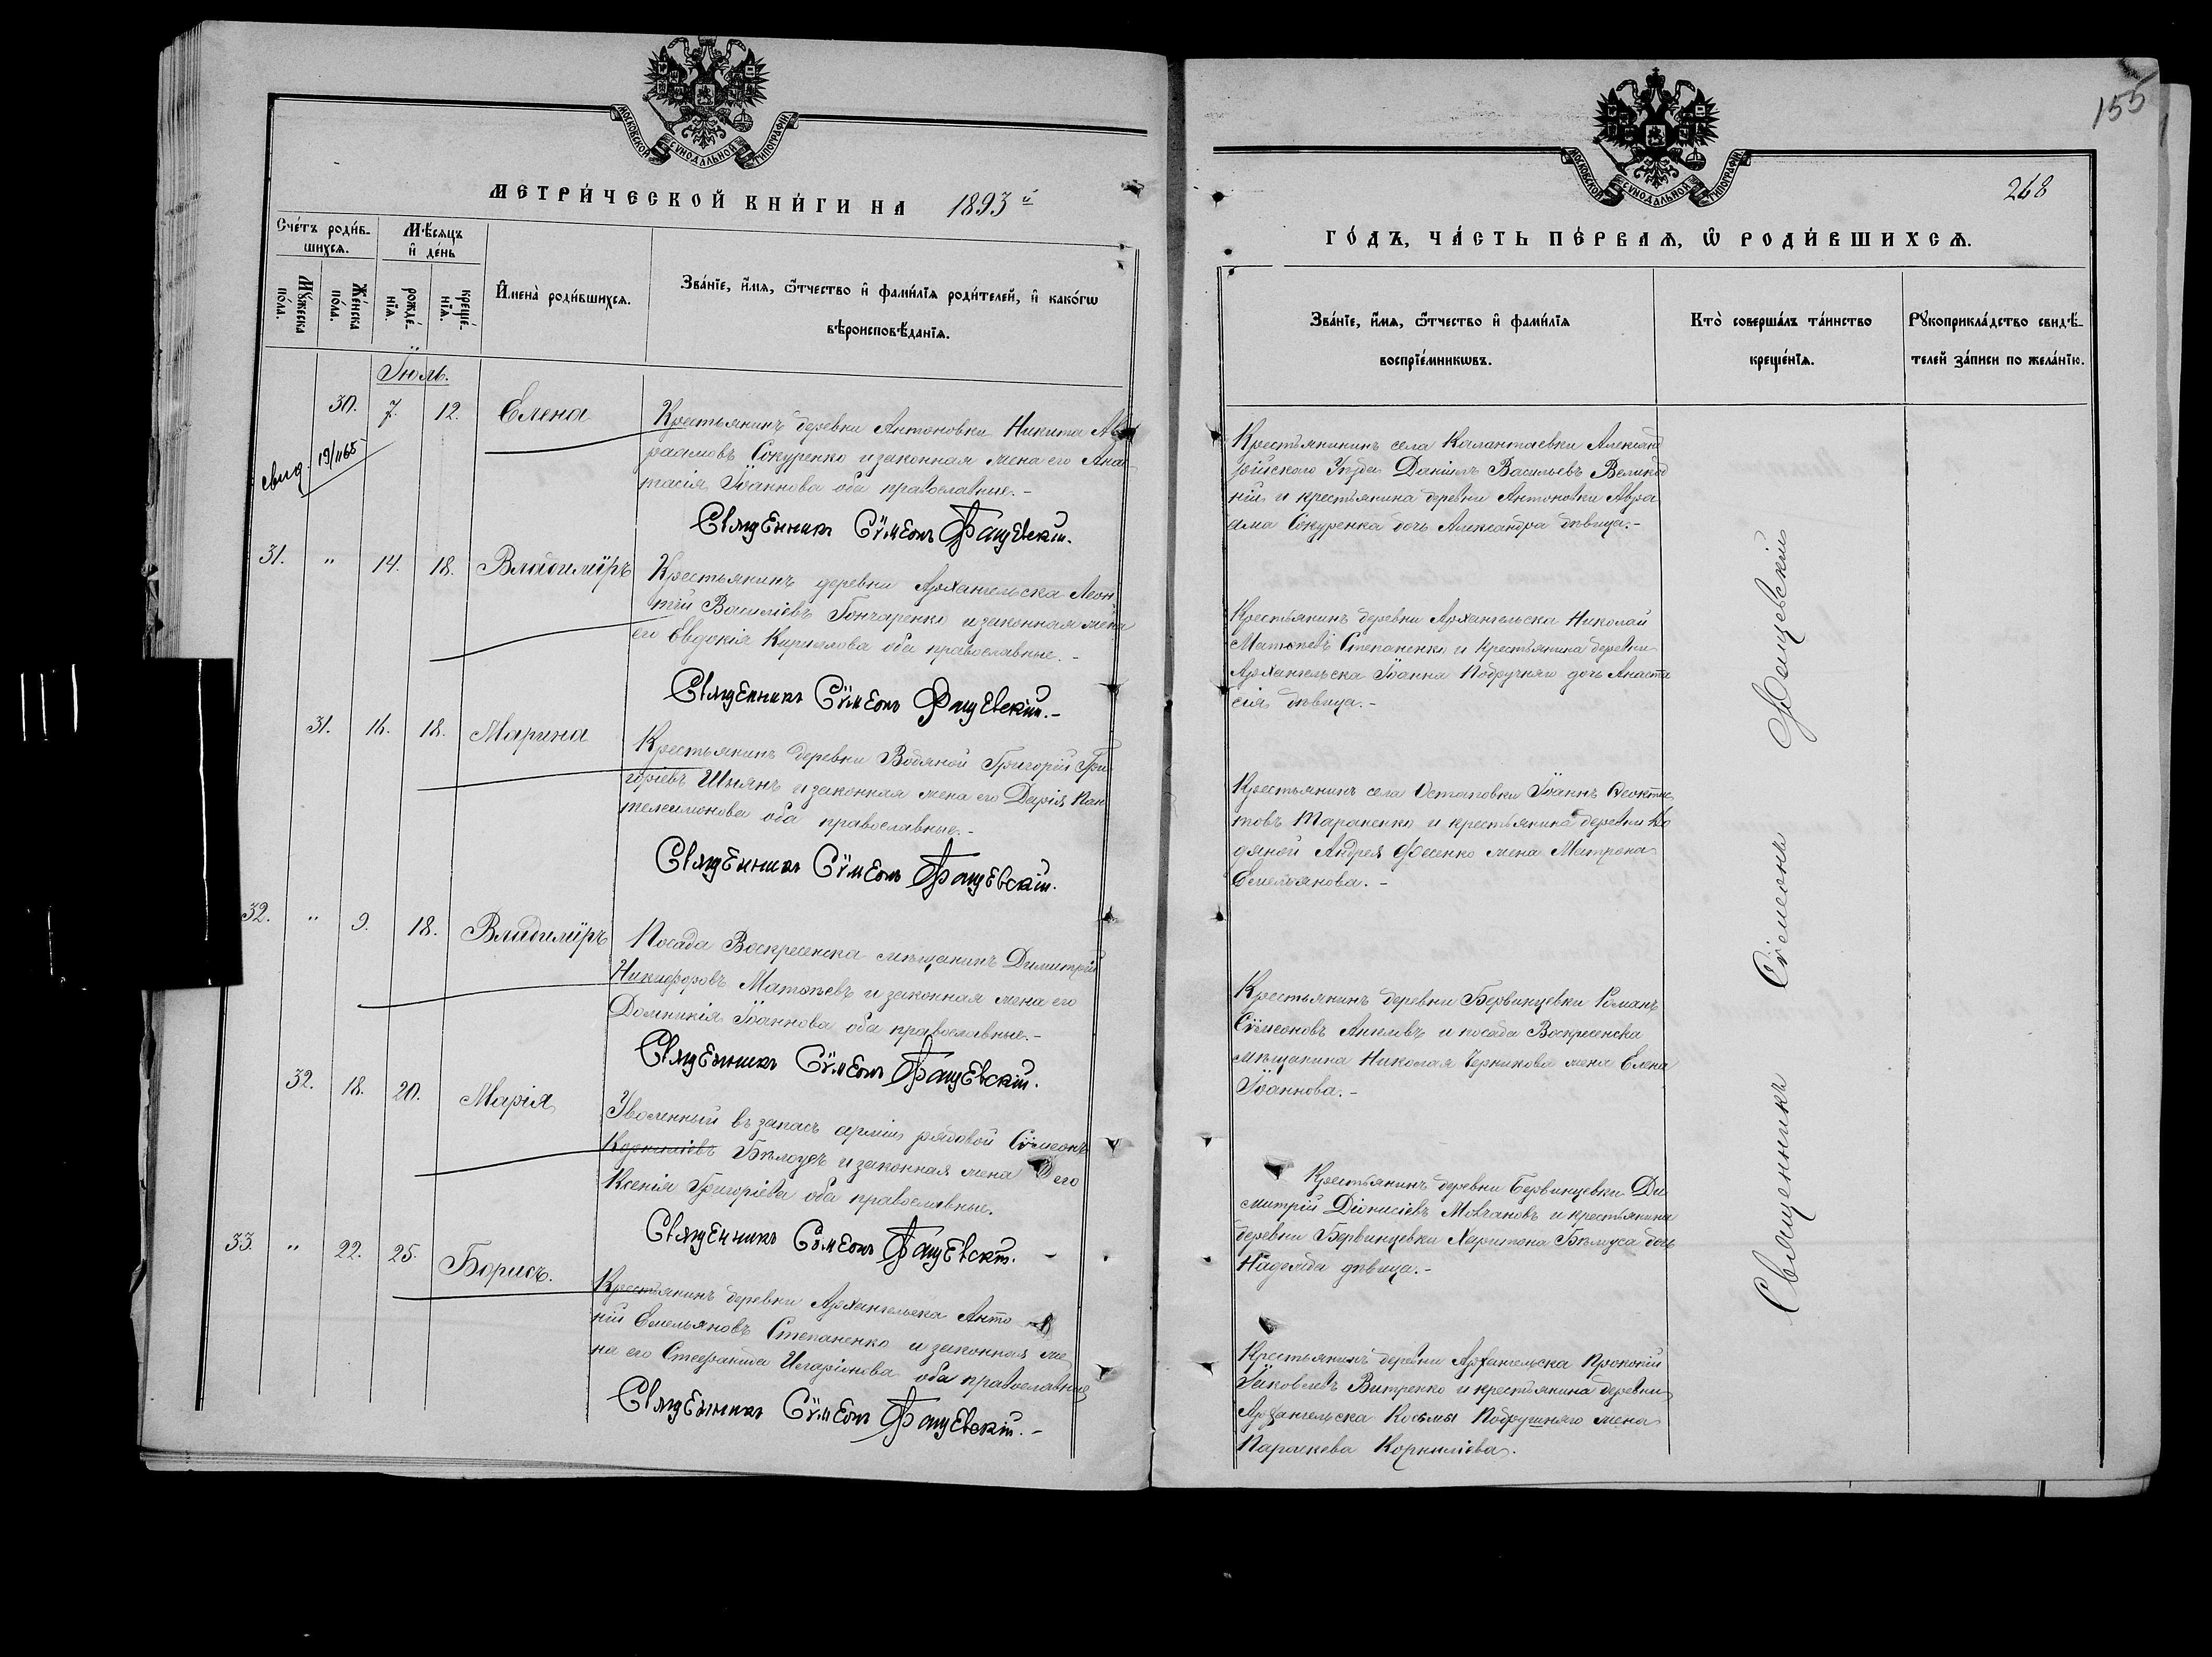 МОСКОВСКОЙ СУНОДАЛЬНОЙ ТИПОГРАФІИ
МЕТРИ́ЧЕСКОЙ КНИ́ГИ НА 1893й
Сче́тъ роди́в-
шихсѧ.
Мѣ́сѧцъ
и҆ де́нь
Мꙋ́жеска
по́ла.
Же́нска
по́ла.
рожде́-
нїѧ.
креще́-
нїѧ.
И҆мена̀ роди́вшихсѧ.
Зва́нїе, и҆́мѧ, ѻ҆́тчество и҆ фами́лїѧ роди́телей, и҆ како́гѡ
вѣроисповѣ́данїѧ.
Іюль.
30. 7. 12. Елена
Крестьянинъ деревни Антоновки Никита Ав
раамовъ Сокуренко и законная жена его Анас
тасія Іоаннова оба православные.-
Священникъ Сѵмеонъ Фащевскій.
свид. 19/II65
31. " 14. 18. Владиміръ
Крестьянинъ деревни Архангельска Леон-
тій Василіевъ Гончаренко и законная жена
его Евдокія Кириллова оба православные.-
Священникъ Сѵмеонъ Фащевскій.-
31. 16. 18. Марина
Крестьянинъ деревни Водяной Григорій Гри
горіевъ Шіянъ и законная жена его Дарія Пан
телеимонова оба православные.-
Священникъ Сѵмеонъ Фащевскій.
32. " 9. 18. Владиміръ
Посада Воскресенска мѣщанинъ Димитрій
Никифоровъ Матвѣевъ и законная жена его
Домникія Іоаннова оба православные.-
Священникъ Сѵмеонъ Фащевскій.
32. 18. 20. Марія
Уволенный въ запасъ арміи рядовой Сѵмеонъ
Корниліевъ Бѣлоусъ и законная жена его
Ксенія Григоріева оба православные.
Священникъ Сѵмеонъ Фащевскій. -
33. " 22. 25. Борисъ.
Крестьянинъ деревни Архангельска Анто
ній Емельяновъ Степаненко и законная же
на его Стефанида Иларіонова оба православные
Священникъ Сѵмеонъ Фащевскій.-
155
МОСКОВСКОЙ СУНОДАЛЬНОЙ ТИПОГРАФІИ
268
ГО́ДЪ, ЧА́СТЬ ПЕ́РВАѦ, Ѽ РОДИ́ВШИХСѦ.
Зва́нїе, и҆́мѧ, ѻ҆́тчество и҆ фами́лїѧ
воспрїе́мникѡвъ.
Кто̀ соверша́лъ та́инство
креще́нїѧ.
Рꙋкоприкла́дство свидѣ́-
телей за́писи по жела́нїю.
Крестьянинъ села Калантаевки Александ
рійского Уѣзда Даніилъ Васильевъ Великод
ній и крестьянина деревни Антоновки Авра
ама Сокуренка дочь Александра дѣвица.-
Крестьянинъ деревни Архангельска Николай
Матвѣевъ Степаненко и крестьянина деревни
Архангельска Іоанна Подручняго дочь Анаста
сія дѣвица.-
Крестьянинъ села Остаповки Іоаннъ Ѳеоктис
товъ Тараненко и крестьянина деревни Во
дяной Андрея Фесенко жена Матрона
Емельянова.-
Крестьянинъ деревни Бервинцевки Романъ
Сѵмеоновъ Ангеловъ и посада Воскресенска
мѣщанина Николая Черникова жена Елена
Іоаннова.-
Крестьянинъ деревни Бервинцевки Ди
митрій Діонисіевъ Мовчановъ и крестьянина
деревни Бервинцевки Харитона Бѣлоуса дочь
Надежда дѣвица.-
Крестьянинъ деревни Архангельска Прокопій
Іаковлевъ Витренко и крестьянина деревни
Архангельска Косьмы Подручняго жена
Параскева Корниліева.
Священникъ Сѵмеонъ Фащевскій